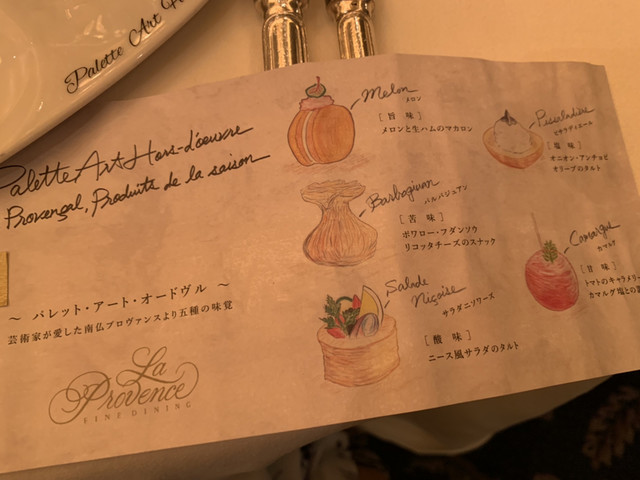 Palette Art H
Palette Art Hors-d'oeuvre
Provençal, Produits de la saison
～ パレット・アート・オードヴル ～
芸術家が愛した南仏プロヴァンスより五種の味覚
La
Provence
FINE DINING
Melon
メロン
[ 旨 味 ]
メロンと生ハムのマカロン
Barbagiuan
バルバジュアン
[ 苦 味 ]
ポワロー・フダンソウ
リコッタチーズのスナック
Salade
Niçoise
サラダニソワーズ
[ 酸 味 ]
ニース風サラダのタルト
Pissaladière
ピサラディエール
[ 塩 味 ]
オニオン・アンチョビ
オリーブのタルト
Camargue
カマルグ
[ 甘 味 ]
トマトのキャラメリー
カマルグ塩との